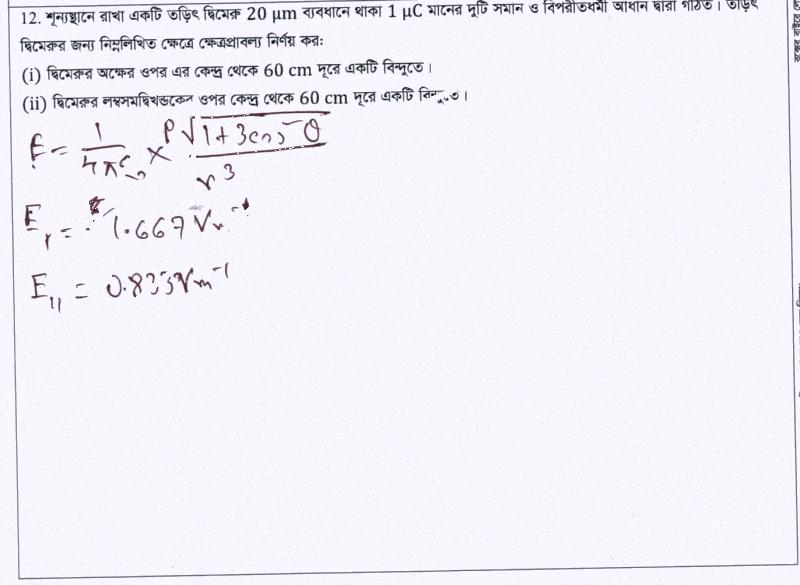 12. শূন্যস্থানে রাখা একটি তড়িৎ দ্বিমেরু 20 μm ব্যবধানে থাকা 1 μC মানের দুটি সমান ও বিপরীতধর্মী আধান দ্বারা গঠিত। তড়িৎ
দ্বিমেরুর জন্য নিম্নলিখিত ক্ষেত্রে ক্ষেত্রপ্রাবল্য নির্ণয় কর:
(i) দ্বিমেরুর অক্ষের ওপর এর কেন্দ্র থেকে 60 cm দূরে একটি বিন্দুতে।
(ii) দ্বিমেরুর লম্বসমদ্বিখণ্ডকের ওপর কেন্দ্র থেকে 60 cm দূরে একটি বিন্দুতে।
E = 1/4πε₀ × P√1+3cos²θ / r³
E₁ = 1.667 Vm⁻¹
E₁₁ = 0.833Vm⁻¹